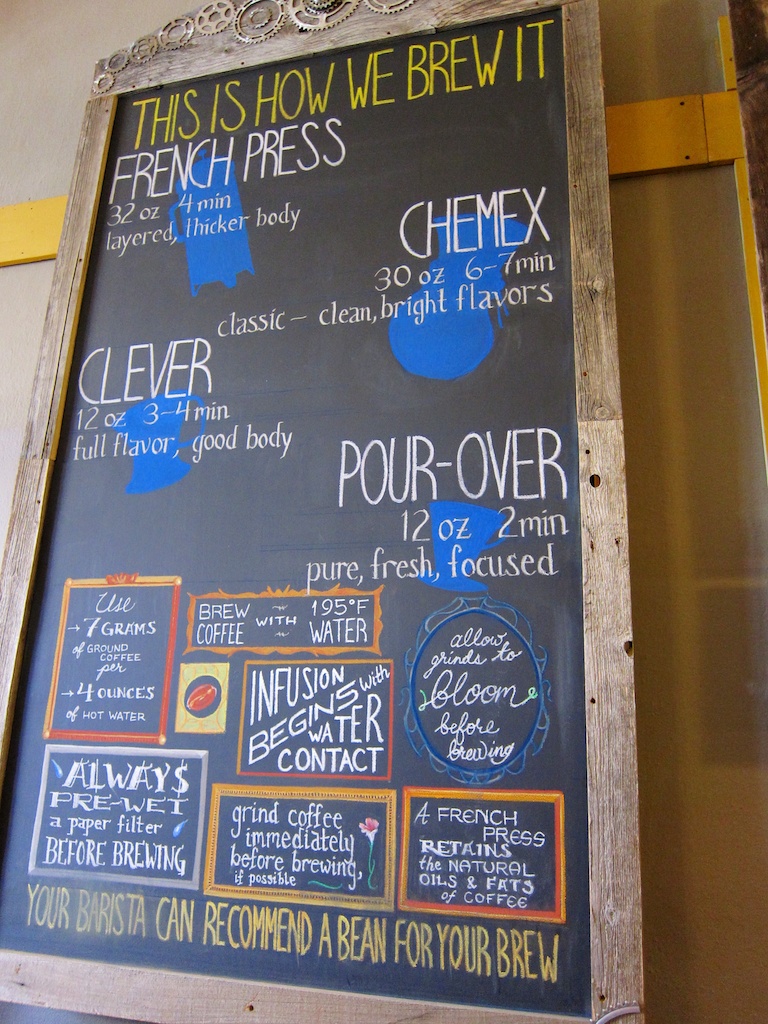 THIS IS HOW WE BREW IT
FRENCH PRESS
32 oz 4 min
layered, thicker body
CHEMEX
30 oz 6-7min
classic - clean, bright flavors
CLEVER
12 oz 3-4 min
full flavor, good body
POUR-OVER
12 oz 2min
pure, fresh, focused
Use
→ 7 GRAMS
of GROUND
COFFEE
per
→ 4 OUNCES
of HOT WATER
BREW WITH 195°F
COFFEE WATER
INFUSION
BEGINS with
WATER
CONTACT
allow
grinds to
bloom
before
brewing
ALWAYS
PRE-WET
a paper filter
BEFORE BREWING
grind coffee
immediately
before brewing,
if possible
A FRENCH
PRESS
RETAINS
the NATURAL
OILS & FATS
of COFFEE
YOUR BARISTA CAN RECOMMEND A BEAN FOR YOUR BREW